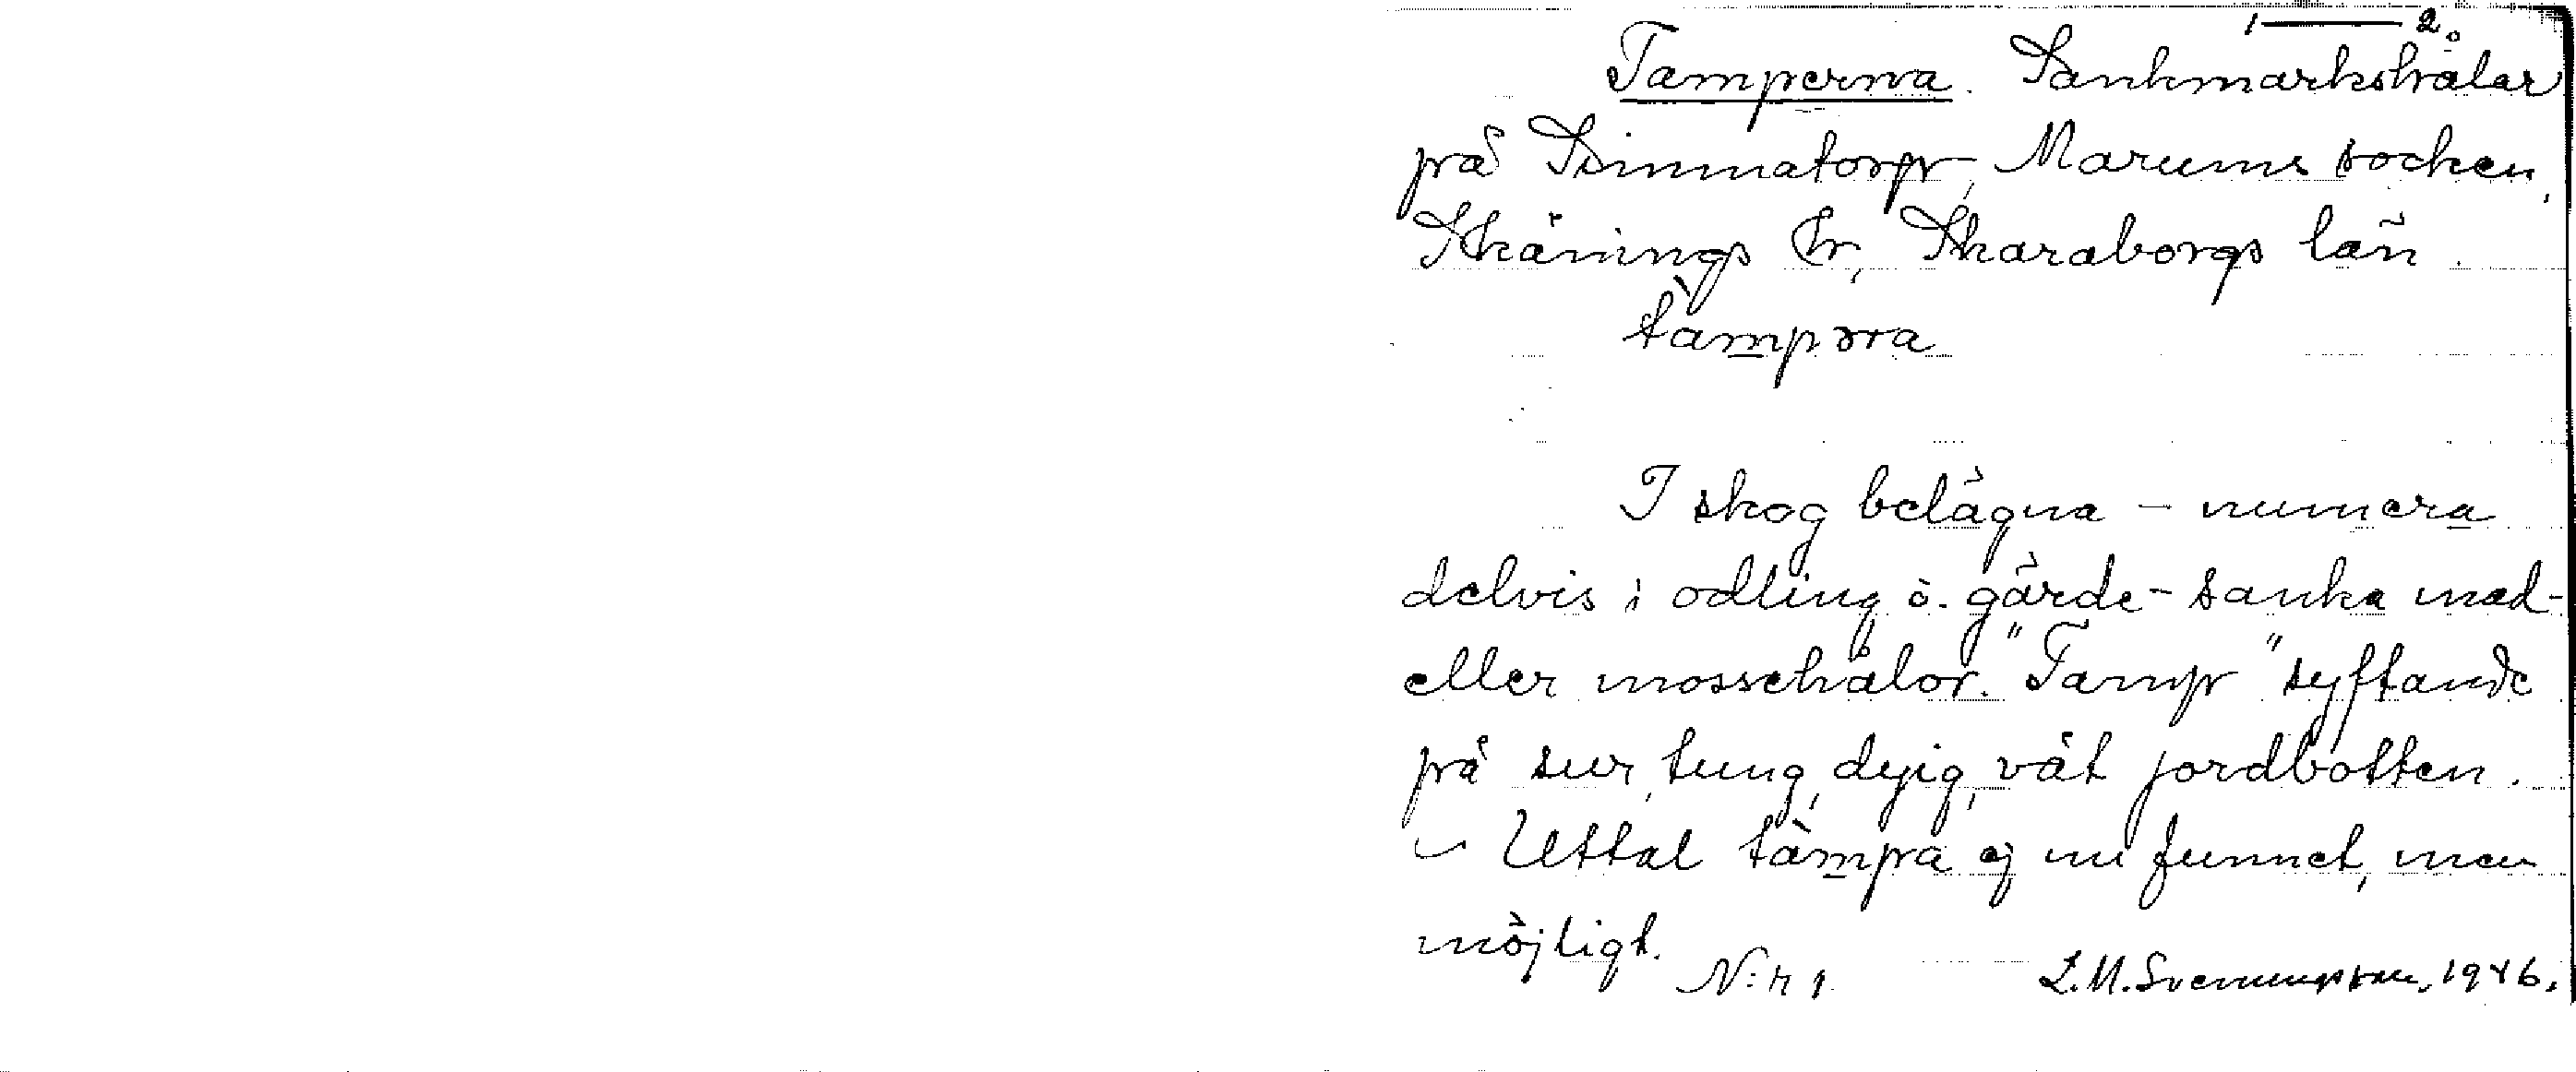 1 — 2.
Tamperna. Sankmarkshålar
på Simmatorp, Marums socken,
Skånings hr, Skaraborgs län.
tàmpəra
I skog belägna - numera
delvis i odling o. gärde - sanka mad-
eller mossehålor. "Tamp" syftande
på sur, tung, dyig, våt jordbotten.
– Uttal tàmpa ej nu funnet, men
möjligt.
N:r 1 L.M. Svenungsson, 1946.